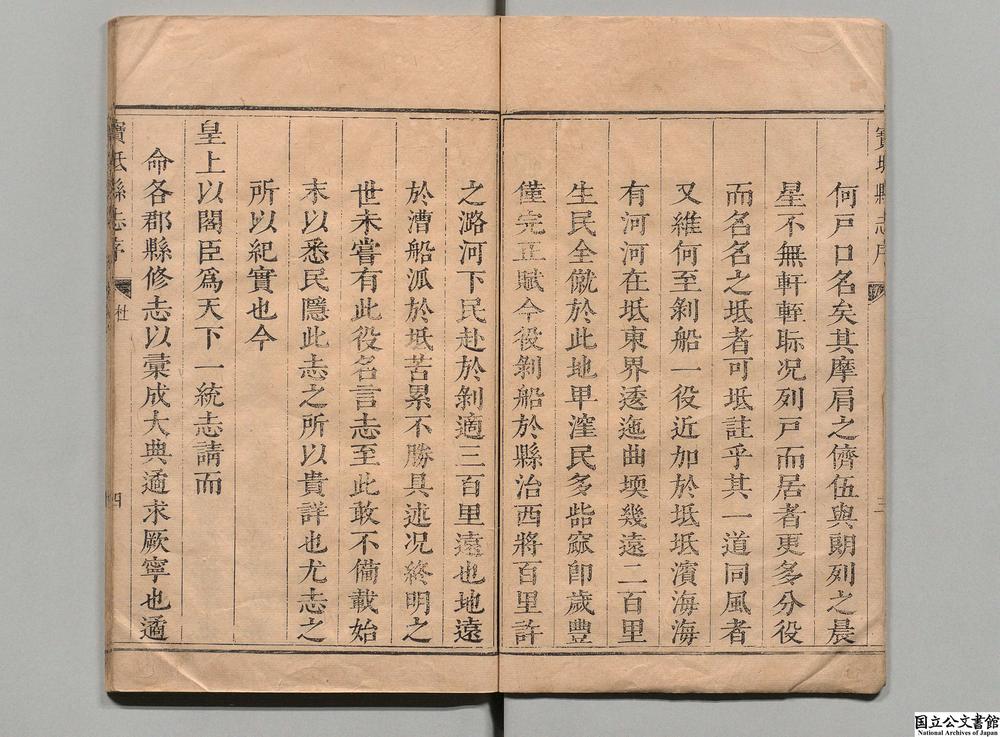 寶坻縣志序
三
何戸口名矣其摩肩之儕伍與朗列之晨
星不無軒輊眎况列戸而居者更多分役
而名名之坻者可坻註乎其一道同風者
又維何至剝船一役近加於坻坻濱海海
有河河在坻東界逶迤曲堧幾遠二百里
生民全僦於此地甲漥民多呰窳即歲豐
僅完正賦今役剝船於縣治西將百里許
之潞河下民赴於剝適三百里遠也地遠
於漕船泒於坻苦累不勝具述况終明之
世未嘗有此役名言志至此敢不備載始
末以悉民隱此志之所以貴詳也尤志之
所以紀實也今
皇上以閣臣爲天下一統志請而
命各郡縣修志以彙成大典遹求厥寧也遹
寶坻縣志序
杜
四
国立公文書館
National Archives of Japan